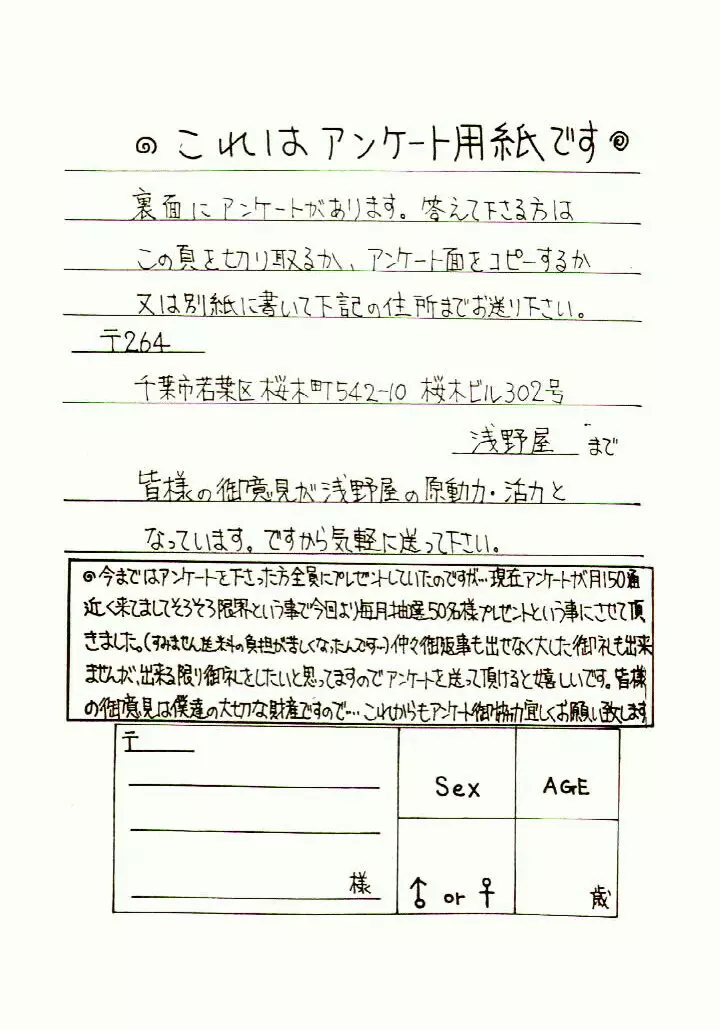 これはアンケート用紙です
裏面にアンケートがあります。答えて下さる方は
この頁を切り取るか、アンケート面をコピーするか
又は別紙に書いて下記の住所までお送り下さい。
〒264
千葉市若葉区桜木町542-10 桜木ビル302号
浅野屋 まで
皆様の御意見が浅野屋の原動力・活力と
なっています。ですから気軽に送って下さい。
今まではアンケートを下さった方全員にプレゼントしていたのですが…現在アンケートが月150通
近く来てましてそろそろ限界という事で今日より毎月抽選50名様プレゼントという事にさせて頂
きました。(すみません送料の負担が苦しくなったんですー)仲々御返事も出せなく大した御礼も出来
ませんが、出来る限り御礼をしたいと思ってますのでアンケートを送って頂けると嬉しいです。皆様
の御意見は僕達の大切な財産ですので…これからもアンケート御協力宜しくお願い致します
〒
Sex
AGE
様
♂ or ♀
歳